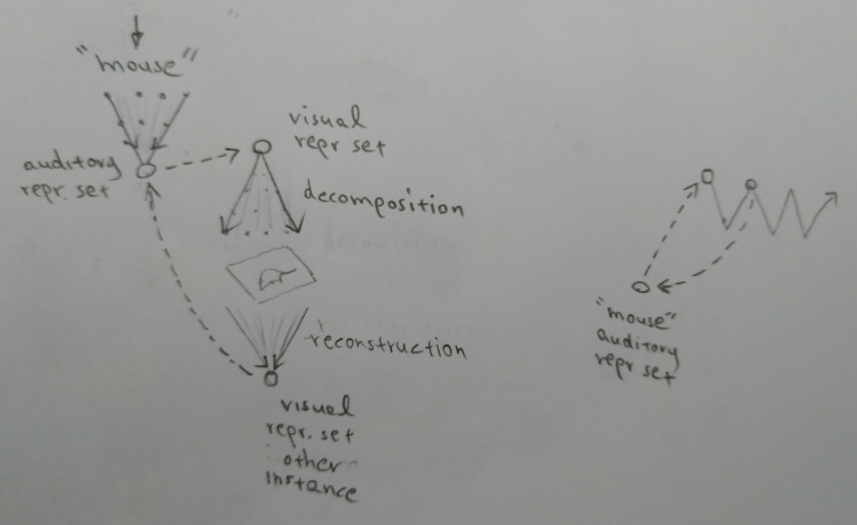 "mouse"
auditory
repr. set
visual
repr set
decomposition
reconstruction
visual
repr. set
other
instance
"mouse"
auditory
repr set